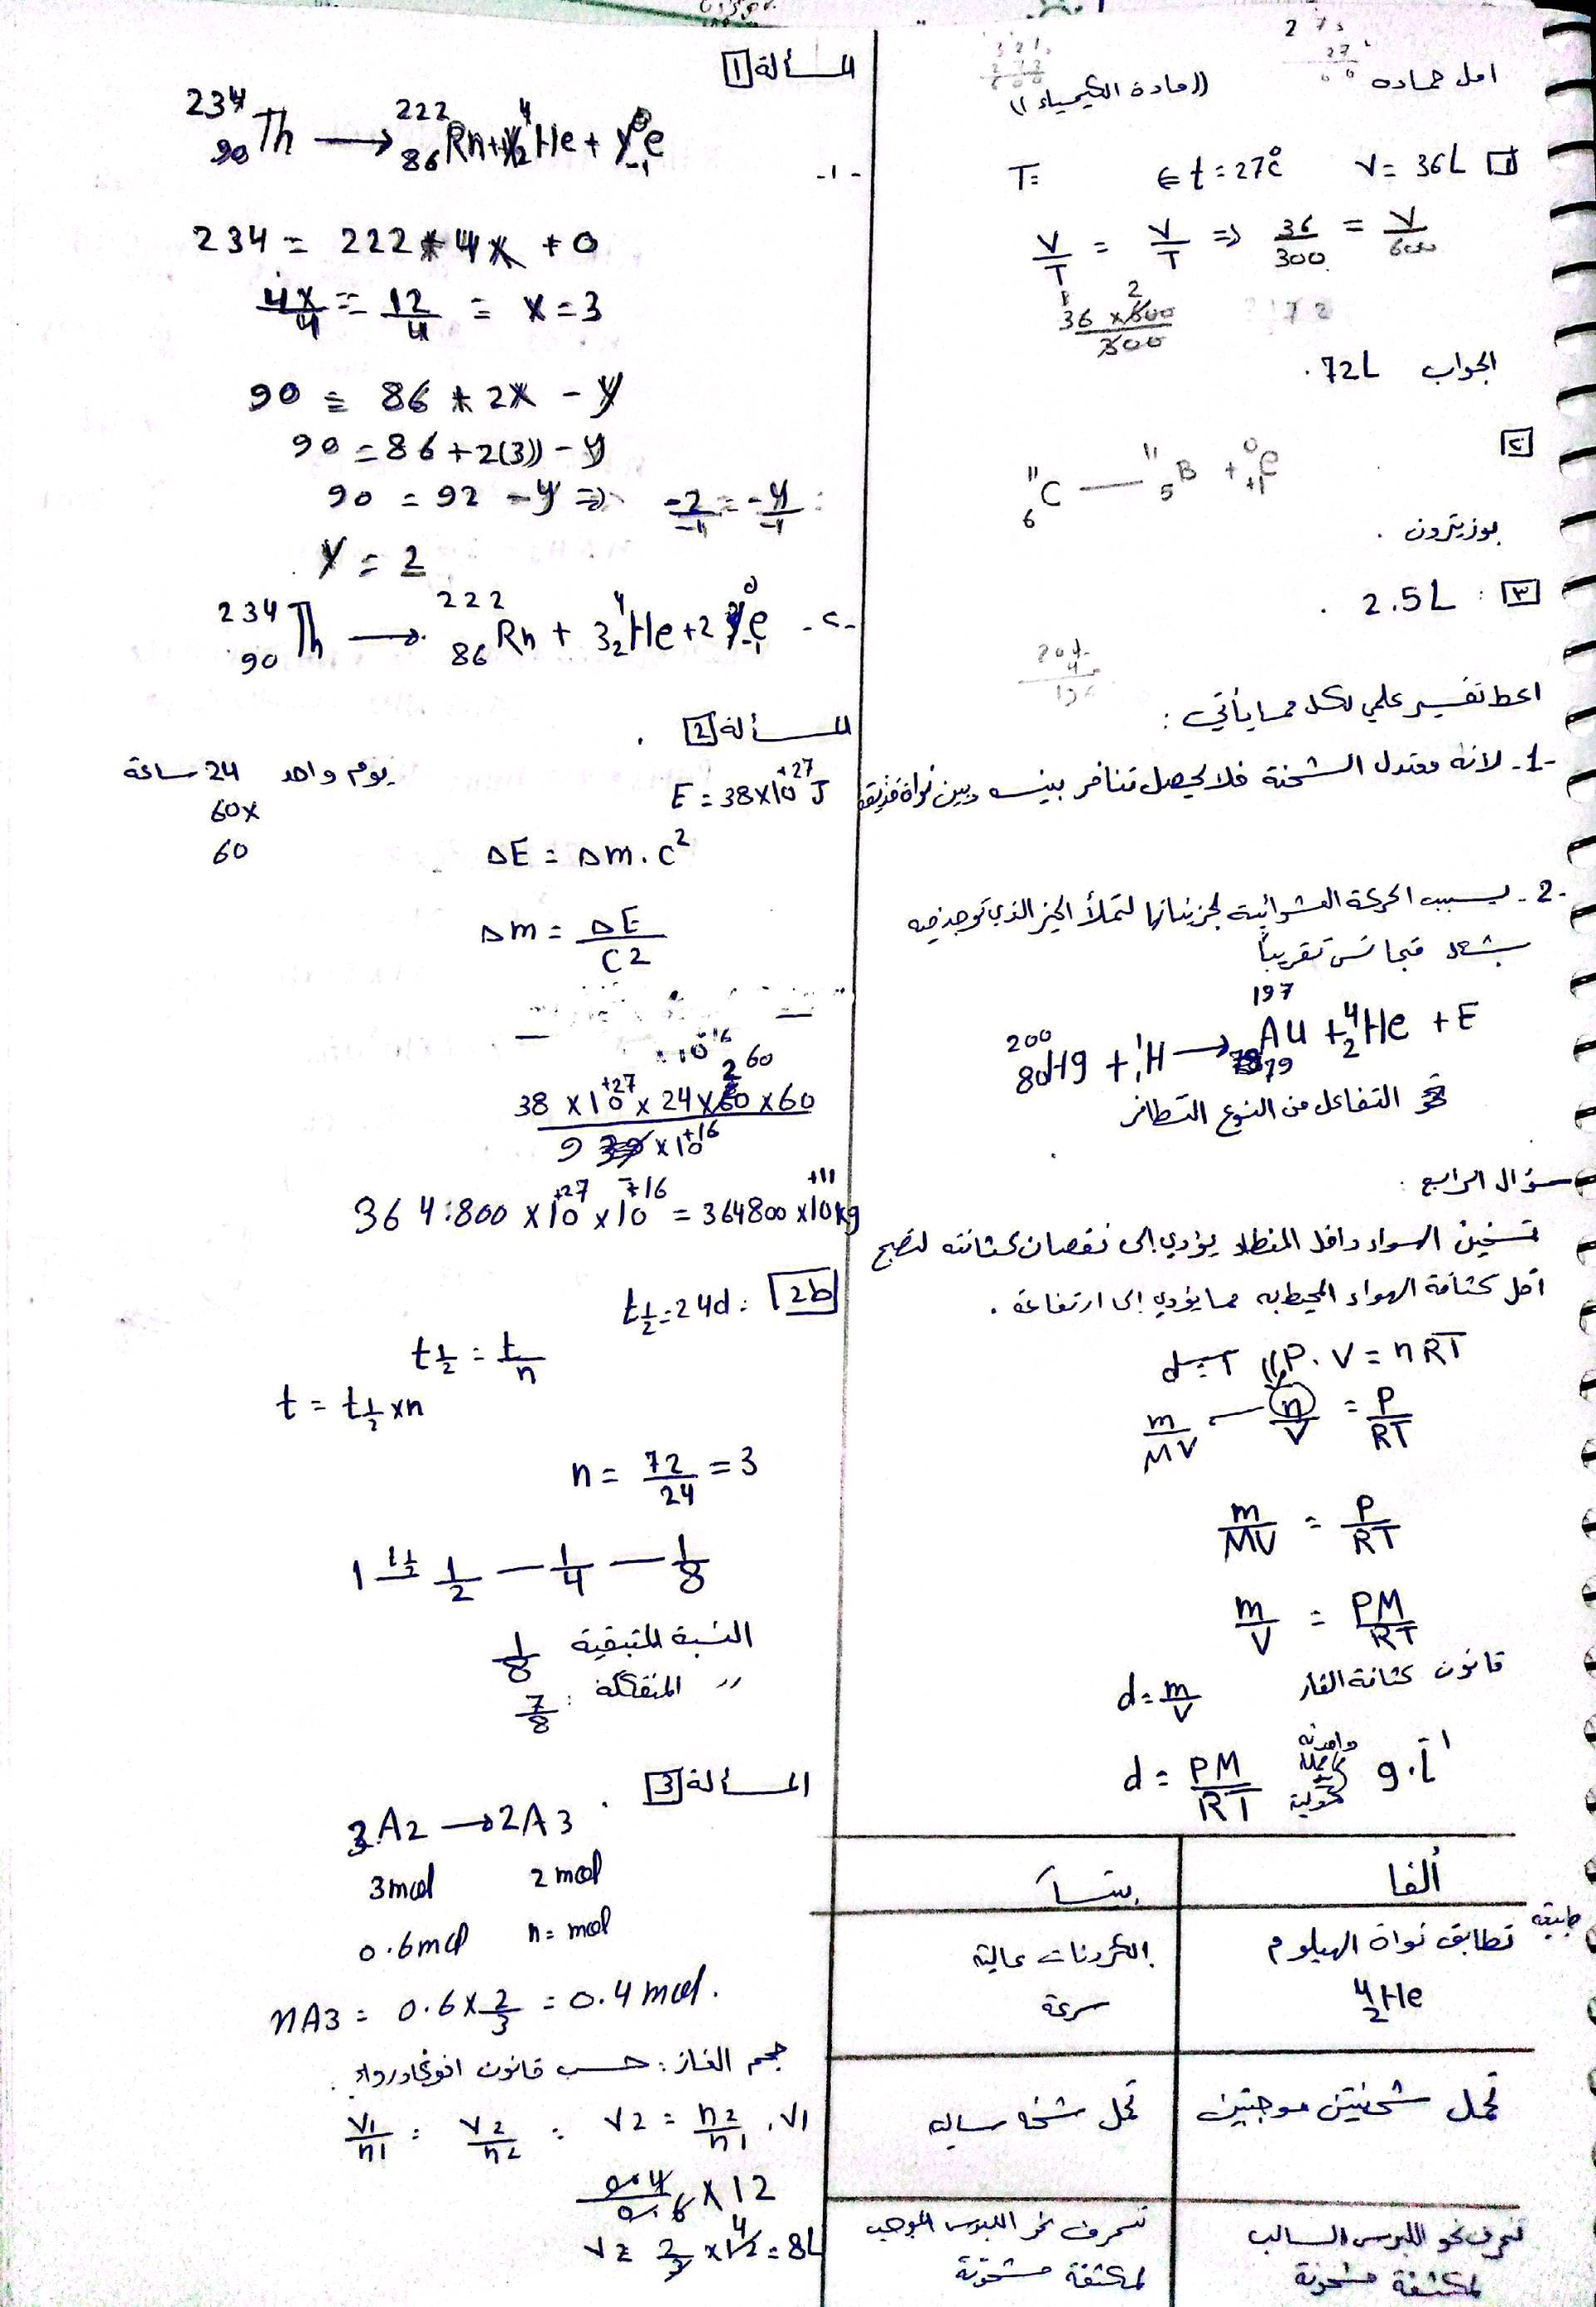 امل حماده
((مادة الكيمياء))
1 V = 36L ⇐ t = 27°C T =
V/T = V/T ⇒ 36/300 = V/600
36 × 600 / 300
الجواب 72L .
٢
¹¹₆C — ¹¹₅B + ⁰₊₁e
بوزيترون .
٣ : 2.5L .
اعط تفسير علمي لكل مما يأتي :
-1- لانه معتدل الشحنة فلا يحصل تنافر بينه وبين نواة قذيفة
-2- بسبب الحركة العشوائية لجزيئاتها لتملأ الحيز الذي توجد فيه
بشكل متجانس تقريباً
²⁰⁰₈₀Hg + ¹₁H → ¹⁹⁷₇₉Au + ⁴₂He + E
التفاعل من النوع التطافر
سؤال الرابع :
تسخين الهواء داخل المنطاد يؤدي إلى نقصان كثافته لتصبح
اقل كثافة الهواء المحيط به مما يؤدي إلى ارتفاعه .
P . V = nRT
m/MV — n/V = P/RT
m/MV = P/RT
m/V = PM/RT
قانون كثافة الغاز d = m/V
d = PM/RT g.L⁻¹
ألفا بيتا
طبيعة تطابق نواة الهيليوم الكترونات عالية
⁴₂He سرعة
تحمل شحنتين موجبتين تحمل شحنة سالبة
تنحرف نحو اللبوس السالب تنحرف نحو اللبوس الموجب
لمكثفة مشحونة لمكثفة مشحونة
المسألة 1
-١- ²³⁴₉₀Th → ²²²₈₆Rn + x⁴₂He + y⁰₋₁e
234 = 222 + 4x + 0
4x/4 = 12/4 = x = 3
90 = 86 + 2x - y
90 = 86 + 2(3)) - y
90 = 92 - y ⇒ -2/-1 = -y/-1
y = 2
-٢- ²³⁴₉₀Th → ²²²₈₆Rn + 3⁴₂He + 2⁰₋₁e
المسألة 2 .
E = 38×10⁺²⁷ J
يوم واحد 24 ساعة
60×
60
ΔE = Δm . c²
Δm = ΔE/C2
38 × 10⁺²⁷ × 24 × 60 × 60 / 9 × 10⁺¹⁶
364.800 × 10⁺²⁷ × 10⁻¹⁶ = 364800 × 10⁺¹¹ kg
2b t½ = 24d :
t½ = t/n
t = t½ × n
n = 72/24 = 3
1 — 1/2 — 1/4 — 1/8
النسبة المتبقية 1/8
〃 المتفككة : 7/8
المسألة 3 .
3A2 → 2A3
3mol 2mol
0.6mol n = mol
nA3 = 0.6 × 2/3 = 0.4 mol.
حجم الغاز : حسب قانون افوغادرو .
V1/n1 = V2/n2 : V2 = n2/n1 . V1
0.4/0.6 × 12
V2 = 2/3 × 12 = 8L